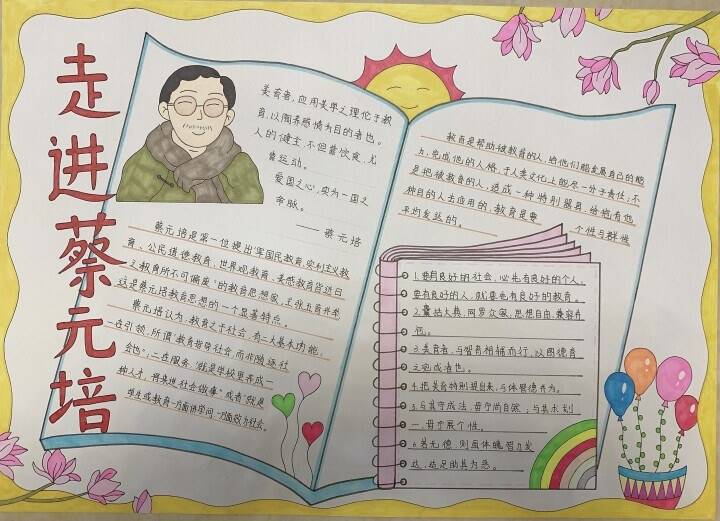 走进蔡元培
美育者，应用美学之理伦于教
育，以陶养感情为目的者也。
人的健全，不但靠饮食，尤
靠运动。
爱国之心，实为一国之
命脉。
——蔡元培
蔡元培是第一位提出"军国民教育、实利主义教
育、公民道德教育、世界观教育、美感教育皆近日
之教育所不可偏废"的教育思想家，主张五育并举
这是蔡元培教育思想的一个显著特点。
蔡元培认为，教育之于社会，有二大基本功能，
一在引领，所谓"教育指导社会，而非随逐社
会也"；二在服务，"就是学校里养成一
种人才，将来进社会做事"或者"就是
学生或教育一方面讲学问一方面效力社会。
教育是帮助被教育的人，给他们能发展自己的能
力，完成他的人格，于人类文化上能尽一分子责任；不
是把被教育的人，造成一种特别器具，给抱有他
种目的人去应用的。教育是要 个性与群性
平均发达的。
1.要有良好的社会，必先有良好的个人，
要有良好的人，就要先有良好的教育。
2.囊括大典，网罗众家，思想自由，兼容并
包。
3.美育者，与智育相辅而行，以图德育
之完成者也。
4.把美育特别提出来，与体智德并为。
5.与其守成法，毋宁尚自然；与其求划
一，毋宁展个性。
6.若无德，则虽体魄智力发
达，适足助其为恶。